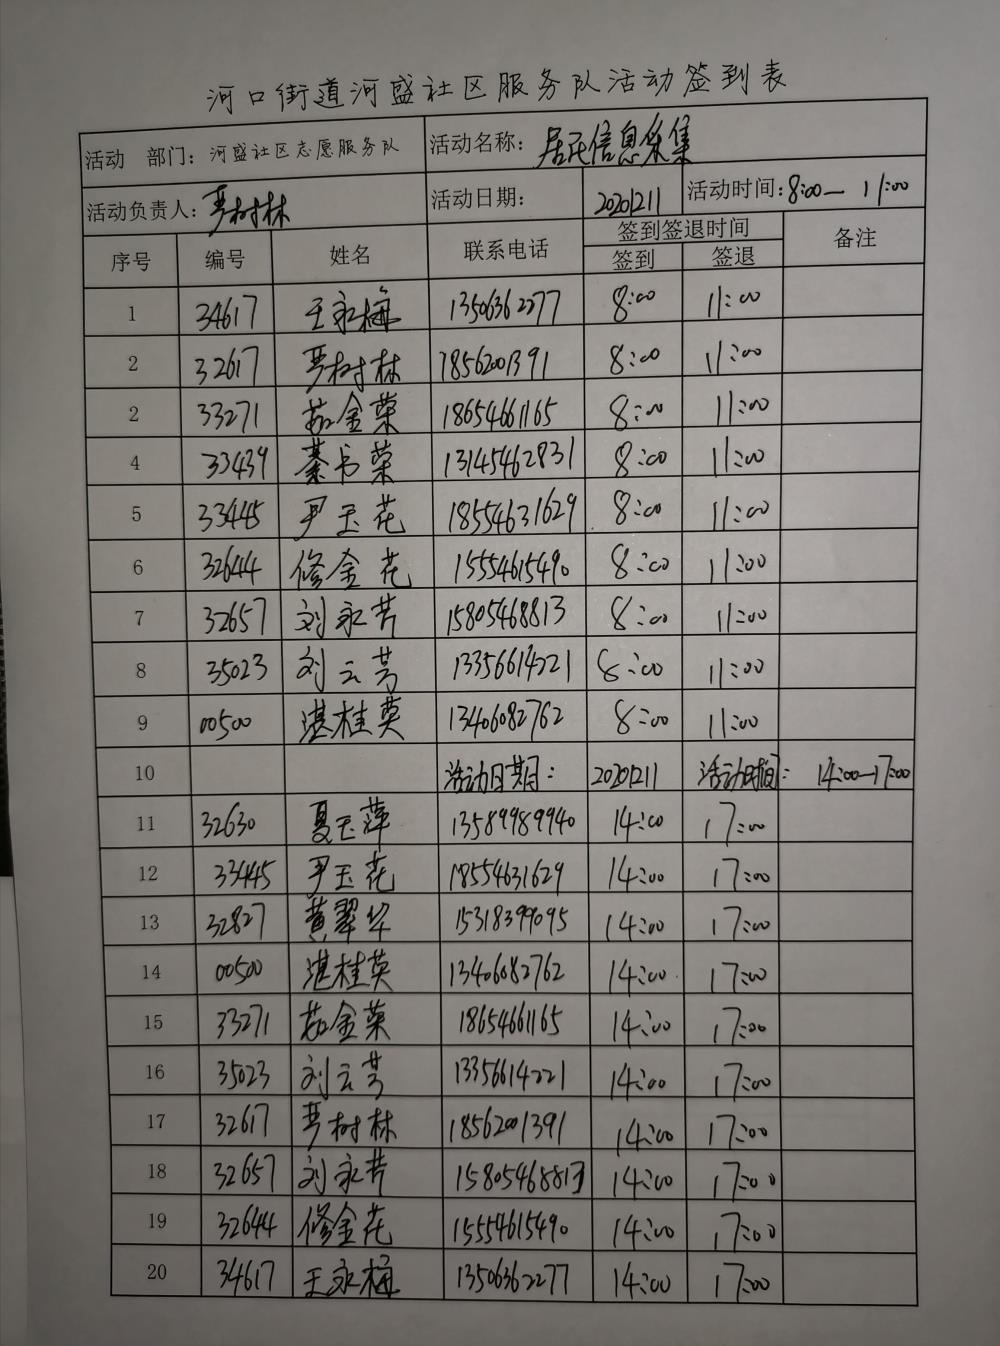 河口街道河盛社区服务队活动签到表
活动 部门：河盛社区志愿服务队 活动名称：居民信息采集
活动负责人：严树林 活动日期： 20201211 活动时间：8:00— 11:00
序号 编号 姓名 联系电话 签到签退时间 备注
签到 签退
1 34617 王永梅 13506362277 8:00 11:00
2 32617 严树林 18562001391 8:00 11:00
2 33271 茹金荣 18654661165 8:00 11:00
4 33439 綦书荣 13145462831 8:00 11:00
5 33445 尹玉花 18554631629 8:00 11:00
6 32644 修金花 15554615490 8:00 11:00
7 32657 刘永芳 15805468813 8:00 11:00
8 35023 刘云芳 13356614221 8:00 11:00
9 00500 湛桂英 13406082762 8:00 11:00
10 活动日期： 20201211 活动时间： 14:00—17:00
11 32630 夏玉萍 13589989940 14:00 17:00
12 33445 尹玉花 18554631629 14:00 17:00
13 32827 黄翠华 15318399095 14:00 17:00
14 00500 湛桂英 13406082762 14:00 17:00
15 33271 茹金荣 18654661165 14:00 17:00
16 35023 刘云芳 13356614221 14:00 17:00
17 32617 严树林 18562001391 14:00 17:00
18 32657 刘永芳 15805468813 14:00 17:00
19 32644 修金花 15554615490 14:00 17:00
20 34617 王永梅 13506362277 14:00 17:00